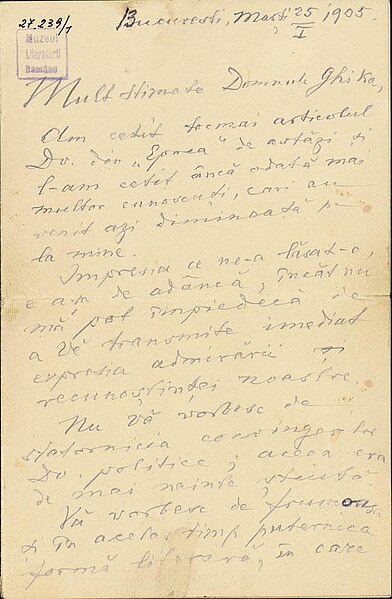 27.239/1
Muzeul
Literaturii
Române
Bucuresti, Marți 25/I 1905.
Mult stimate Domnule Ghika,
Am cetit tocmai articolul
Dv. din "Epoca" de astăzi și
l-am cetit încă odată mai
multor cunoscuți, cari au
venit azi dimineață p
la mine.
Impresia ce ne-a lăsat-o,
e așa de adâncă, încât nu
mă pot împiedecà de
a Vě transmite imediat
expresia admirării și
recunoștinței noastre.
Nu vă vorbesc de
statornicia convingerilor
Dv. politice; aceea era
de mai nainte știută.
Vă vorbesc de frumoasa
și în acelaș timp puternica
formă literară, în care